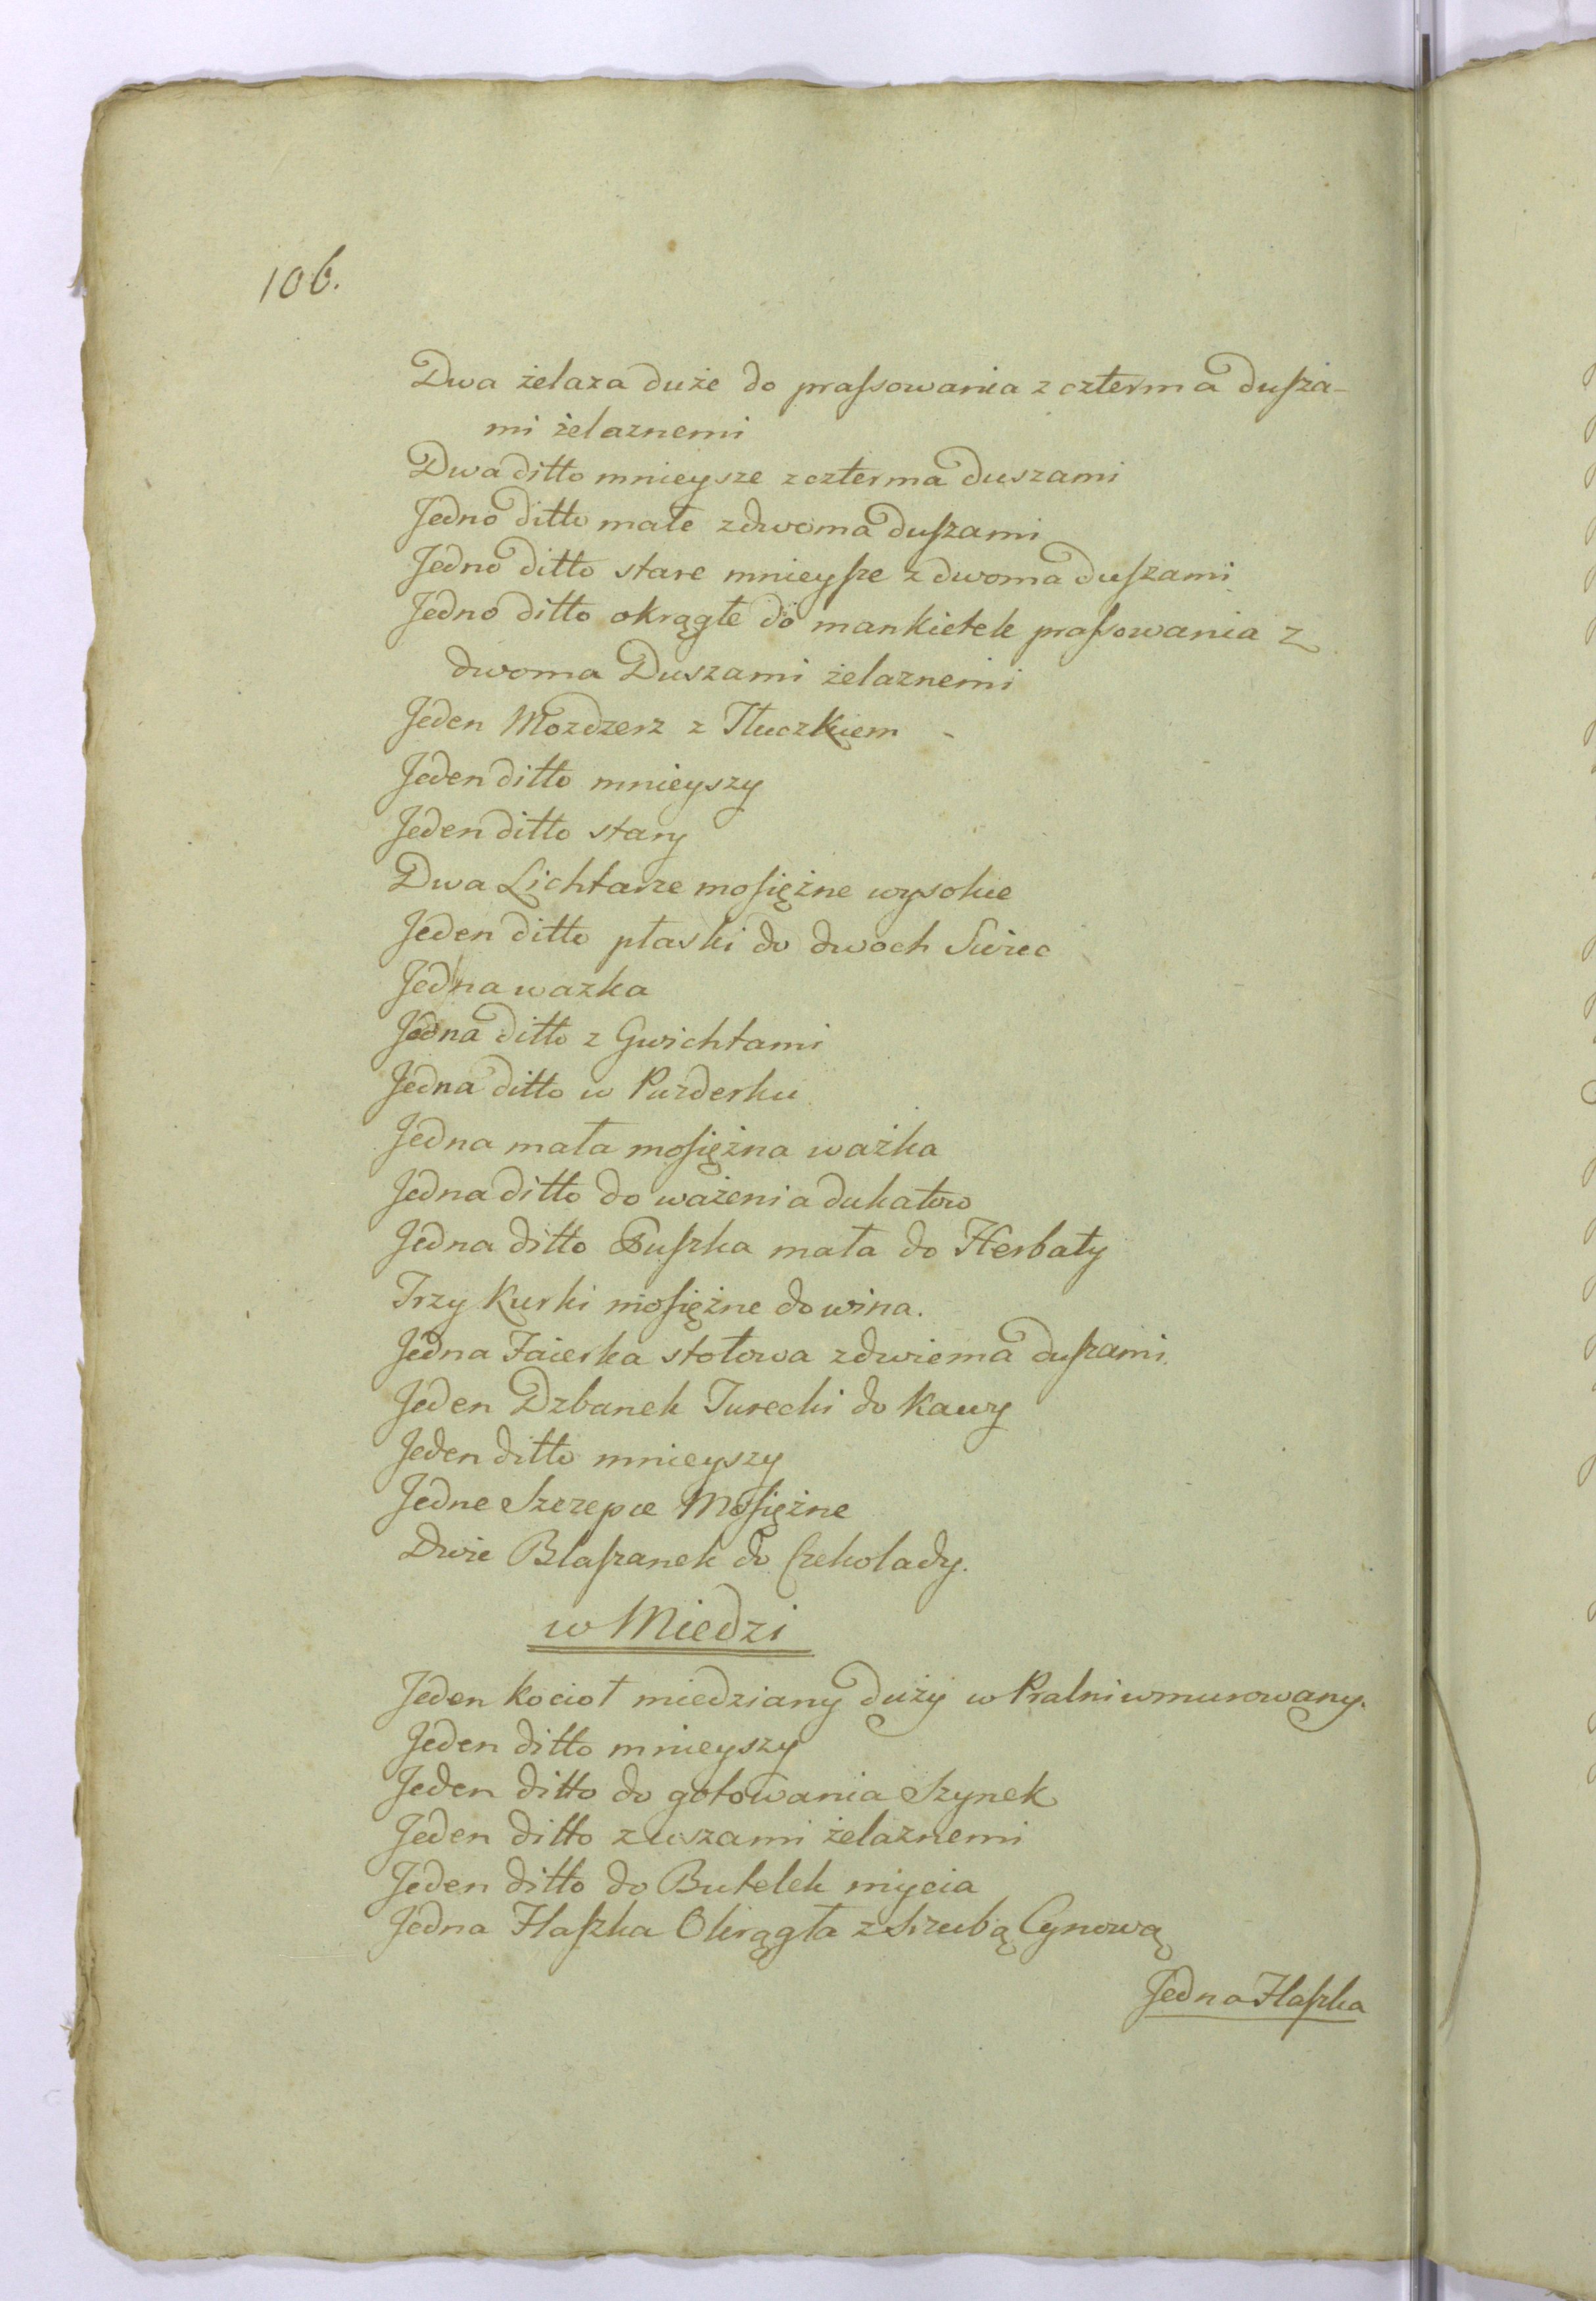 106.
Dwa żelaza duże do prassowania z czterma dusza-
mi żelaznemi
Dwa ditto mnieysze z czterma duszami
Jedno ditto małe z dwoma duszami
Jedno ditto stare mnieysze z dwoma duszami
Jedno ditto okrągłe do mankietek prassowania z
dwoma Duszami żelaznemi
Jeden Mozdzerz z Tłuczkiem -
Jeden ditto mnieyszy
Jeden ditto stary
Dwa Lichtarze mosiężne wysokie
Jeden ditto płaski do dwoch Swiec
Jedna wazka
Jedna ditto z Gwichtami
Jedna ditto w Puzderku
Jedna mała mosiężna ważka
Jedna ditto do ważenia dukatow
Jedna ditto Puszka mała do Herbaty
Trzy Kurki mosiężne do wina.
Jedna Faierka stołowa z dwiema duszami.
Jeden Dzbanek Turecki do Kawy
Jeden ditto mnieyszy
Jedne Szczepce Mosiężne
Dwie Blaszanek do Czekolady.
w Miedzi
Jeden Kocioł miedziany duży w Pralni wmurowany.
Jeden ditto mnieyszy
Jeden ditto do gotowania Szynek
Jeden ditto z uszami żelaznemi
Jeden ditto do Butelek mycia
Jedna Flaszka Okrągła z Szrubą Cynową
Jedna Flaszka